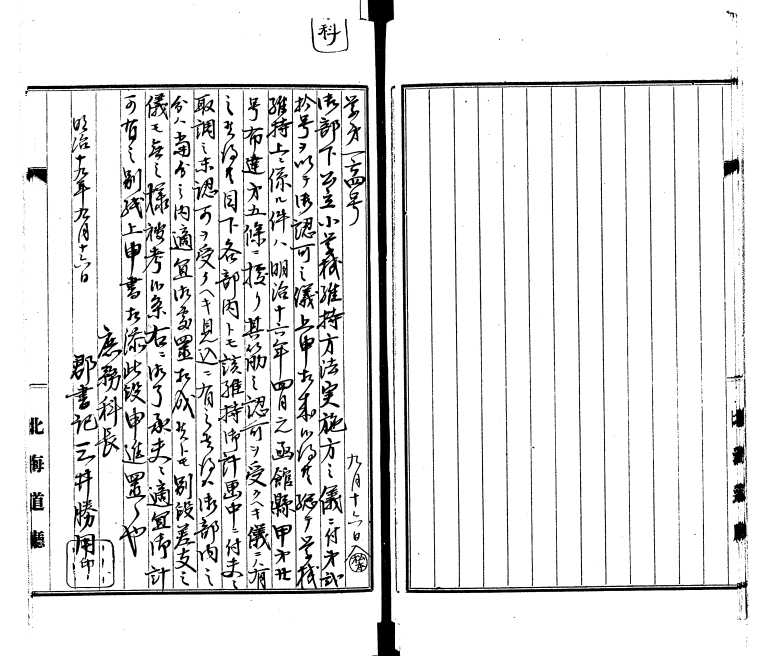 科
学第一四号
御部下公立小学校維持方法実施方之儀ニ付第弐
拾号ヲ以テ御認可之儀上申相成候得共総テ学校
維持上ニ係ル件ハ明治十六年四月元函館縣甲第廿
号布達第五條ニ據リ其筋之認可ヲ受クヘキ儀ニハ有
之候得共目下各部内トモ該維持御計畫中ニ付夫々
取調之末認可ヲ受クヘキ見込ニ有之候得ハ御部内之
分ハ当分之内適宜御處置相成候トモ別段差支之
儀モ無之様被考候条右ニ御了承夫々適宜御計
可有之別紙上申書相添此段申進置候也
九月十六日
明治十九年九月十六日
庶務科長
郡書記三井勝用
印
北海道廳